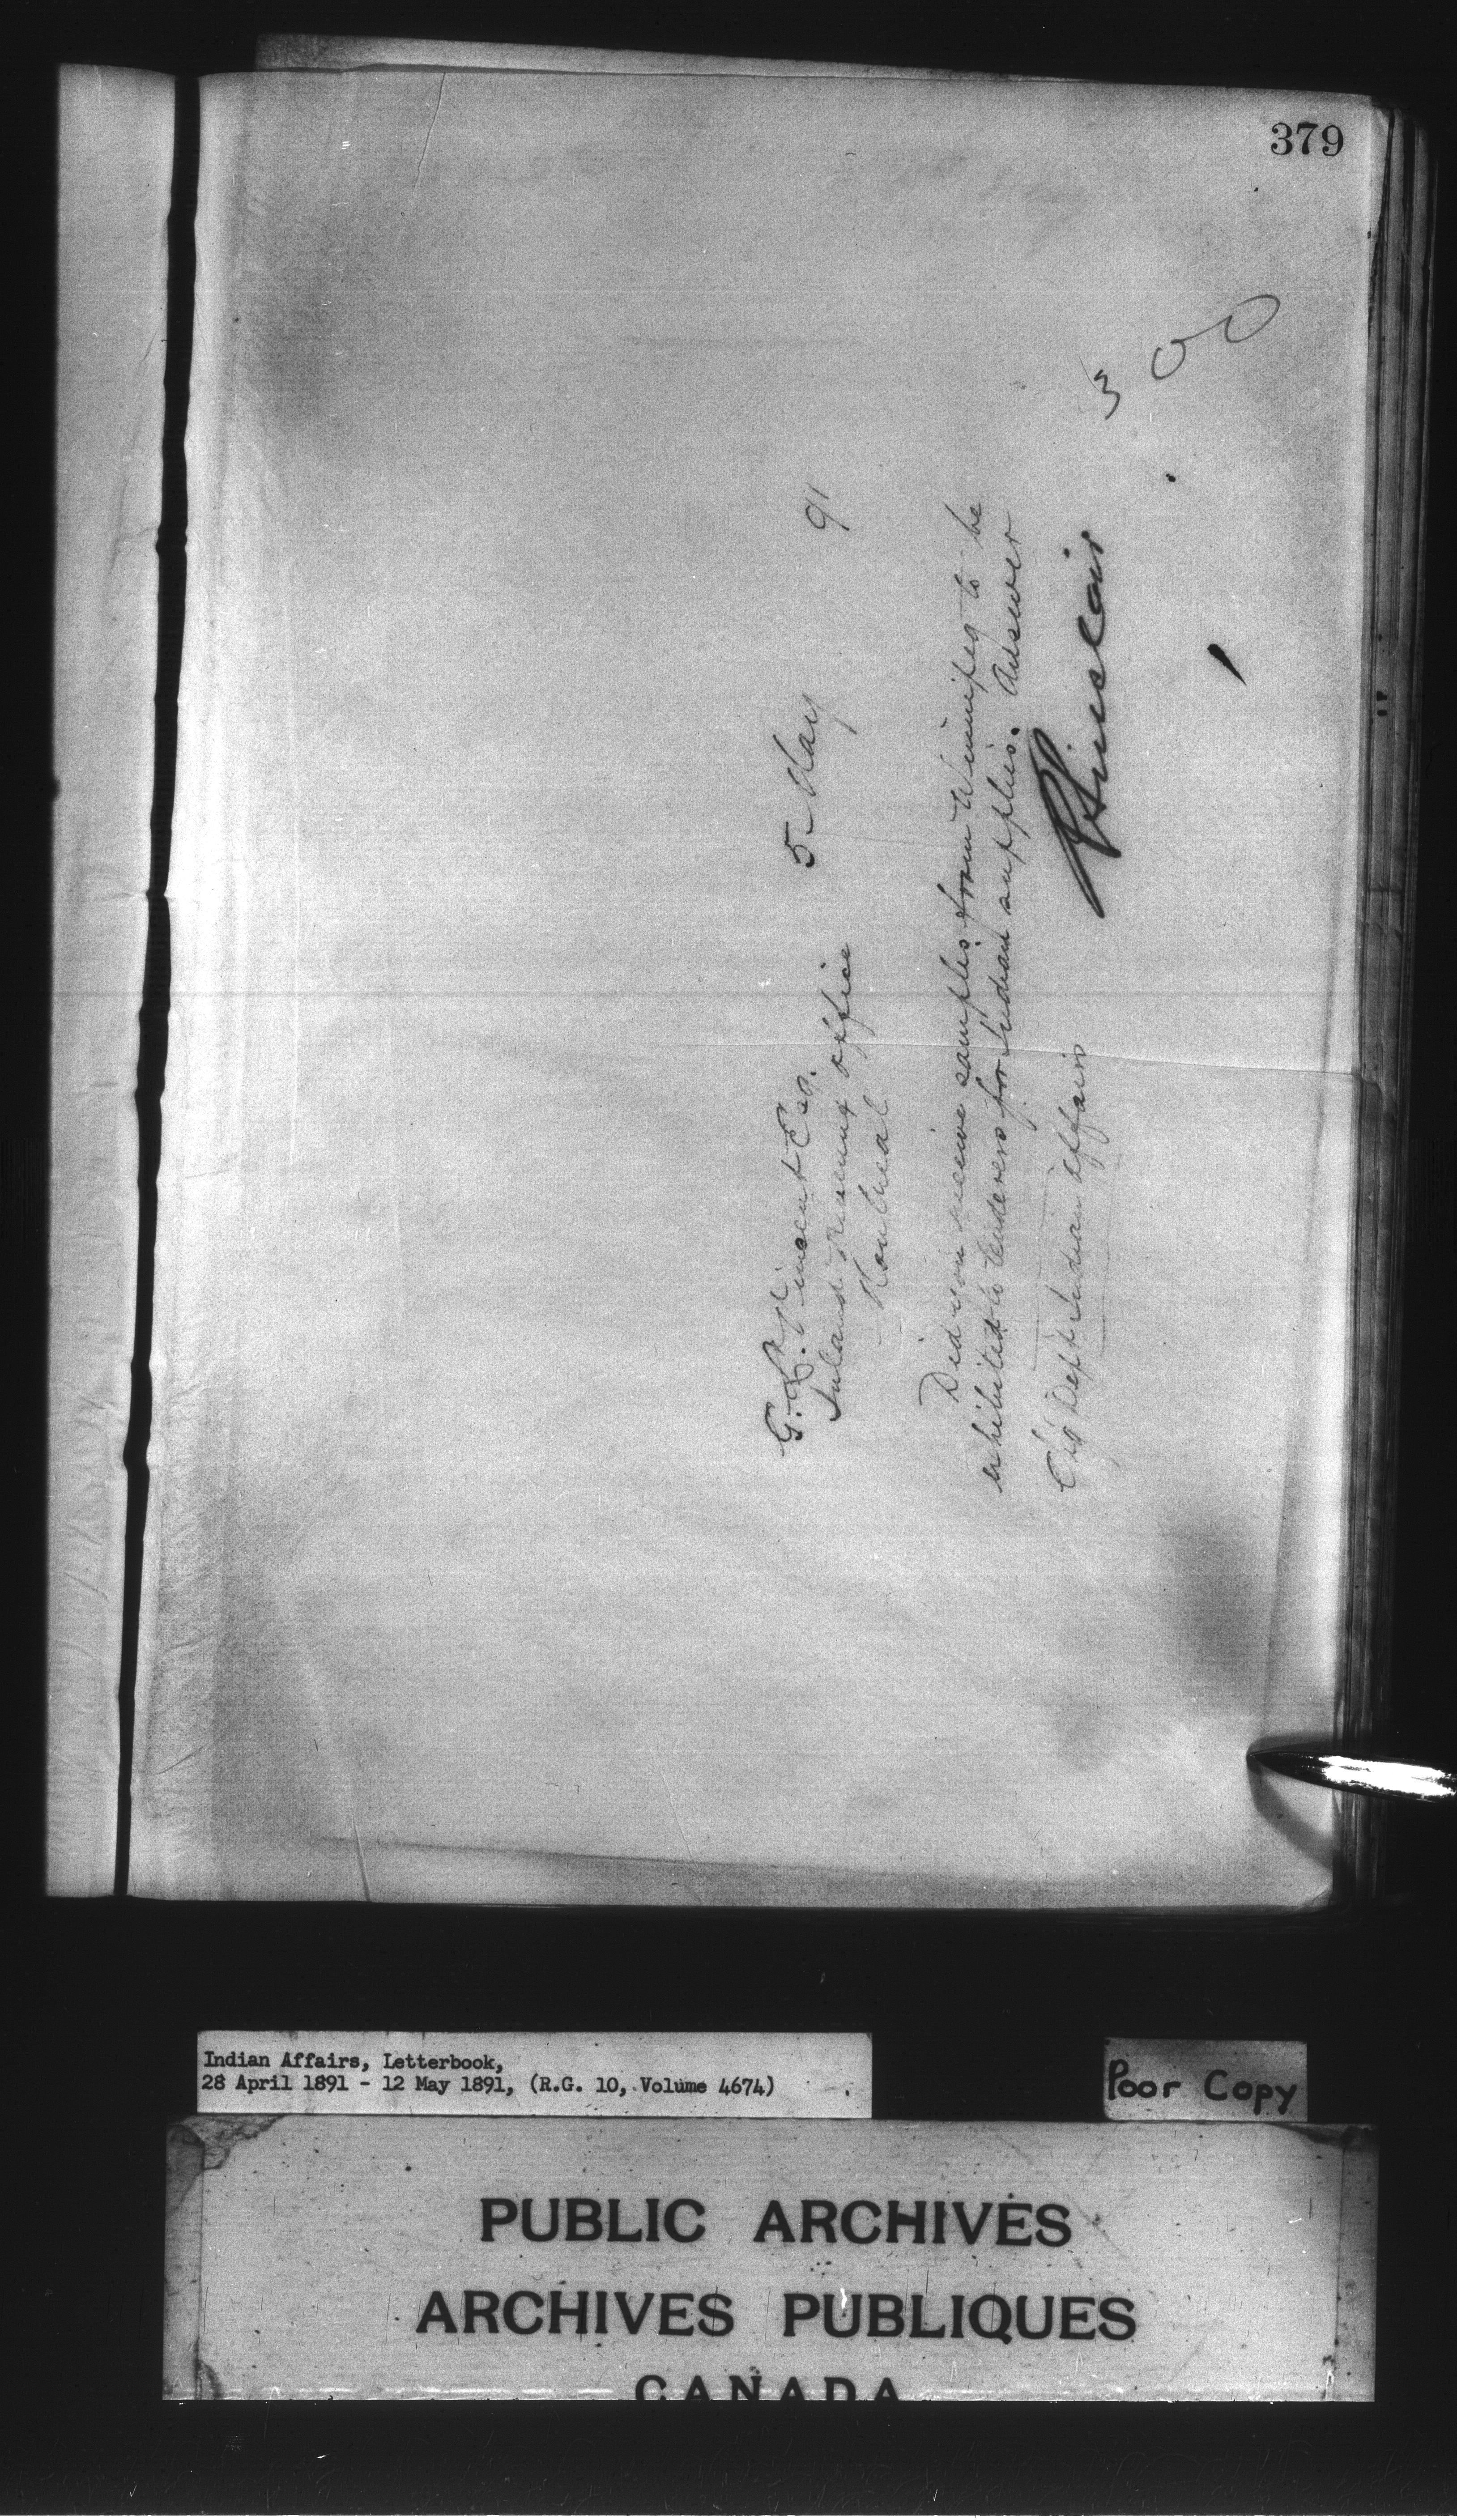 379
300
5 May 91
G. H. Vincent Esq.
Inland Revenue office
Montreal
Did you receive samples from Winnipeg to be
exhibited to tenderers for Indian supplies. Answer
Chg Dept Indian Affairs
Sinclair
Indian Affairs, Letterbook,
28 April 1891 - 12 May 1891, (R.G. 10, Volume 4674)
Poor Copy
PUBLIC ARCHIVES
ARCHIVES PUBLIQUES
CANADA